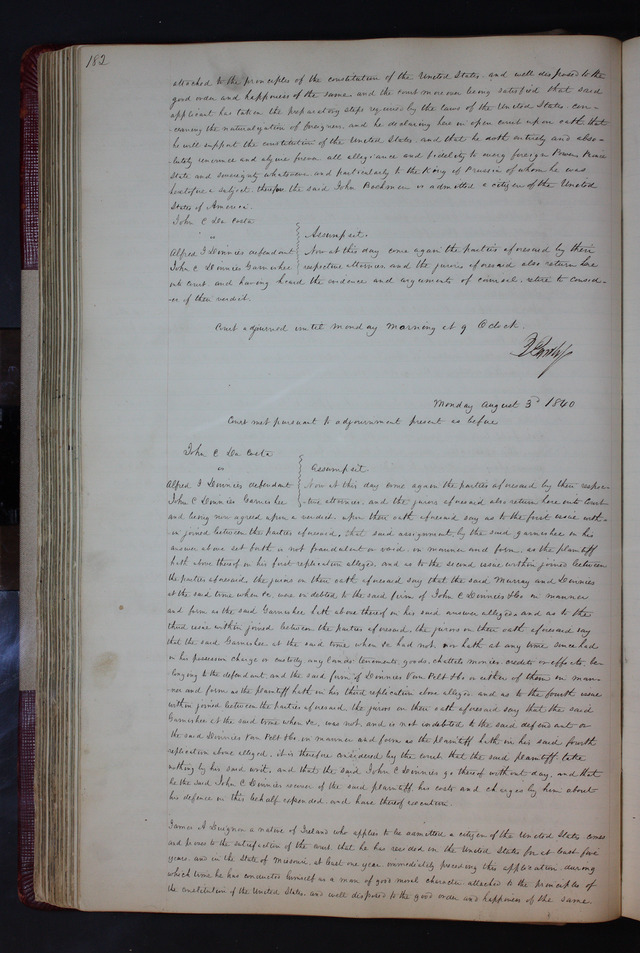 182
attached to the principles of the constitution of the United States, and well disposed to the
good order and happiness of the same and the court moreover being satisfied that said
applicant has taken the preparatory steps required by the laws of the United States, con-
cerning the naturalization of foreigners, and he declaring here in open court upon oath that
he will support the constitution of the United States, and that he doth entirely and abso-
lutely renounce and abjure forever all allegiance and fidelity to every foreign Power, Prince
State and sovereignty whatsoever and particularly to the King of Prussia of whom he was
heretofore a subject, therefore the said John Bachman is admitted a citizen of the United
States of America.
John C Da Costa
vs
Assumpsit.
Alfred J Dinnies defendant Now at this day come again the parties aforesaid by their
John C Dinnies Garnishee respective attornies, and the jurors aforesaid also return here
into Court, and having heard the evidence and arguments of counsel, retire to consid-
er of their verdict.
Court adjourned until Monday morning at 9 Oclock.
Monday August 3d 1840
Court met pursuant to adjournment present as before
John C Da Costa
vs
Assumpsit
Alfred J Dinnies defendant Now at this day come again the parties aforesaid by their respec-
John C Dinnies Garnishee tive attornies, and the jurors aforesaid also return here into Court
and being now agreed upon a verdict, upon their oath aforesaid say as to the first issue with-
in joined between the parties aforesaid, that said assignment by the said garnishee in his
answer above set forth is not fraudulent or void in manner and form, as the plaintiff
hath above thereof in his first replication alleged, and as to the second issue within joined between
the parties aforesaid, the jurors on their oath aforesaid say that the said Murray and Dinnies
at the said time when &c, was in debted to the said firm of John C Dinnies &Co in manner
and form as the said Garnishee hath above thereof in his said answer alleged and as to the
third issue within joined between the parties aforesaid, the jurors on their oath aforesaid say
that the said Garnishee at the said time when &c had not nor hath at any time since had
in his possession charge or custody any lands tenements, goods, chattels monies, credits or effects, be-
longing to the defendant, and the said firm of Dinnies Van Pelt &Co or either of them in man-
ner and form as the plaintiff hath in his third replication above alleged and as to the fourth issue
within joined between the parties aforesaid, the jurors on their oath aforesaid say that the said
Garnishee at the said time when &c, was not, and is not indebted to the said defendant or
the said Dinnies Van Pelt &Co in manner and form as the plaintiff hath in his said fourth
replication above alleged, it is therefore considered by the court that the said plaintiff take
nothing by his said writ, and that the said John C Dinnies go thereof without day, and that
he the said John C Dinnies recover of the said plaintiff his costs and charges by him about
his defence in this behalf expended, and have thereof execution.
James A Durgin a native of Ireland who applies to be admitted a citizen of the United States, comes
and proves to the satisfaction of the court that he has resided in the United States for at least five
years, and in the State of Missouri, at least one year, immediately preceding this application, during
which time he has conducted himself as a man of good moral character attached to the principles of
the constitution of the United States, and well disposed to the good order and happiness of the same